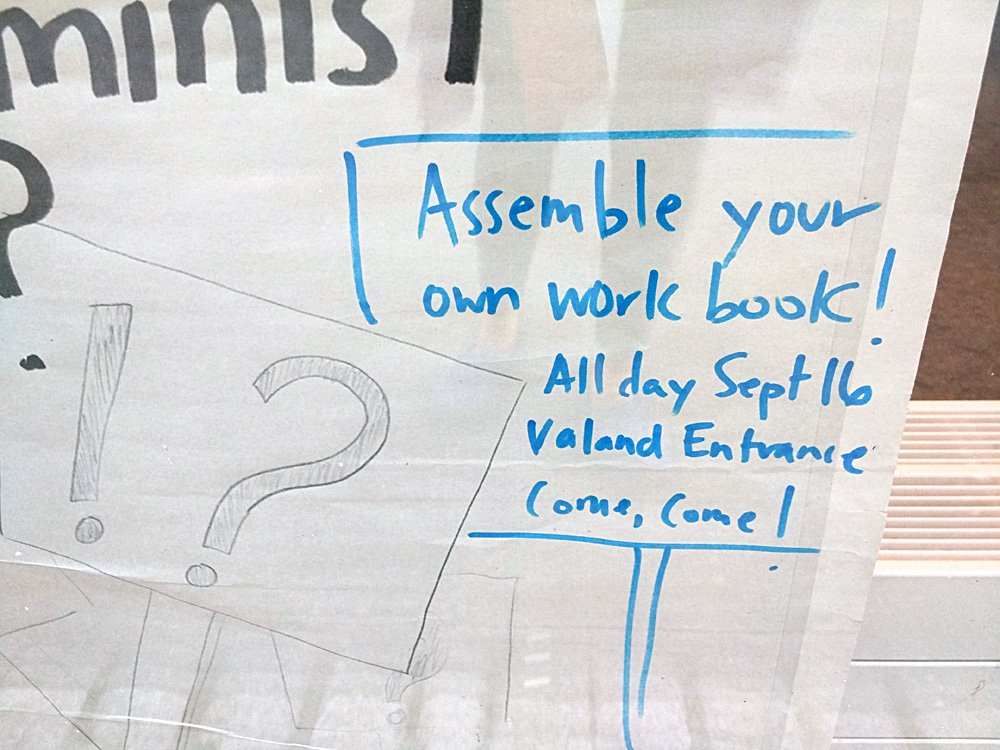 minist
?
Assemble your
own work book!
All day Sept 16
Valand Entrance
Come, Come!
! ?